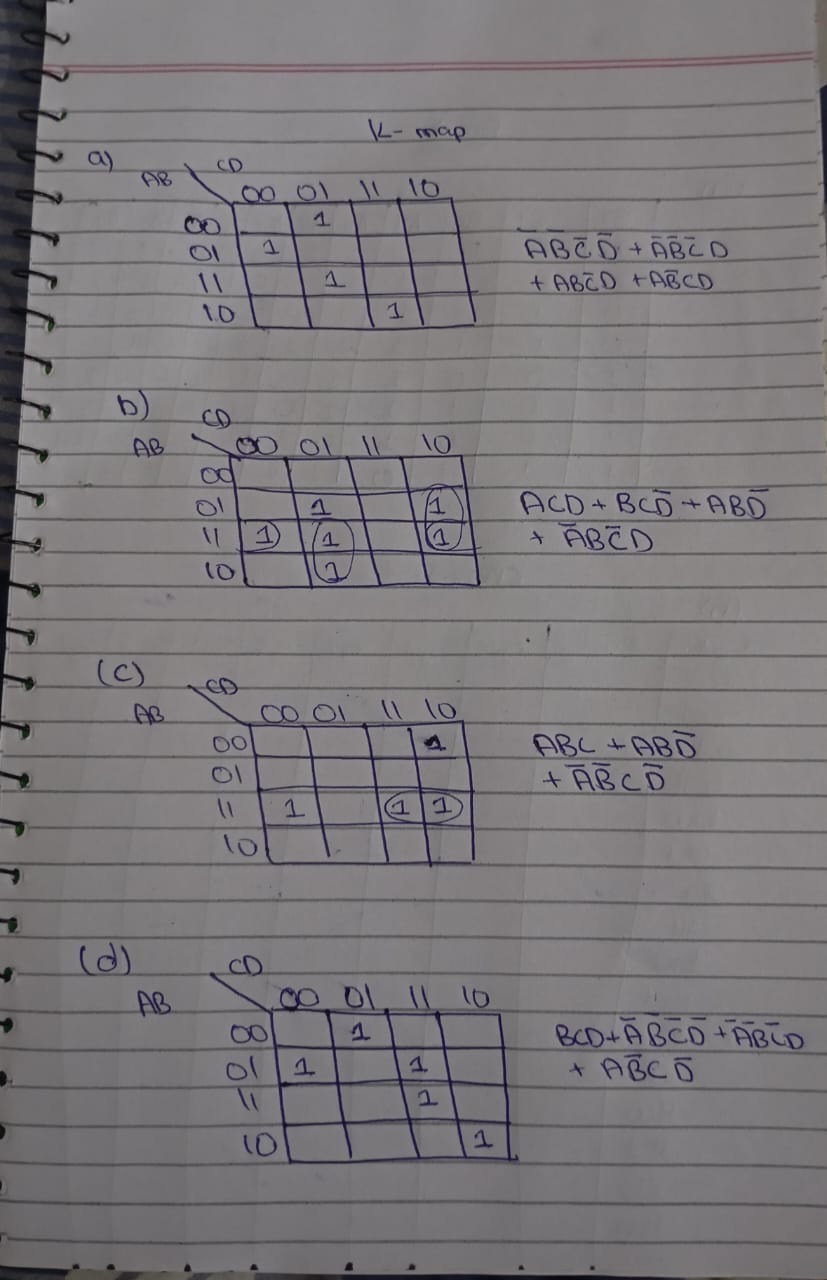 K-map
a)
CD
AB
00 01 11 10
00 1
01 1
11 1
10 1
A̅B̅C̅D̅ + A̅B̅C̅D
+ ABC̅D + AB̅CD
b)
CD
AB
00 01 11 10
00
01 1 1
11 1 1 1
10 1
ACD + BCD̅ + ABD̅
+ A̅BC̅D
(c)
CD
AB
00 01 11 10
00 1
01
11 1 1 1
10
ABC + ABD̅
+ A̅B̅CD̅
(d)
CD
AB
00 01 11 10
00 1
01 1 1
11 1
10 1
BCD + A̅B̅C̅D̅ + A̅B̅C̅D
+ AB̅CD̅